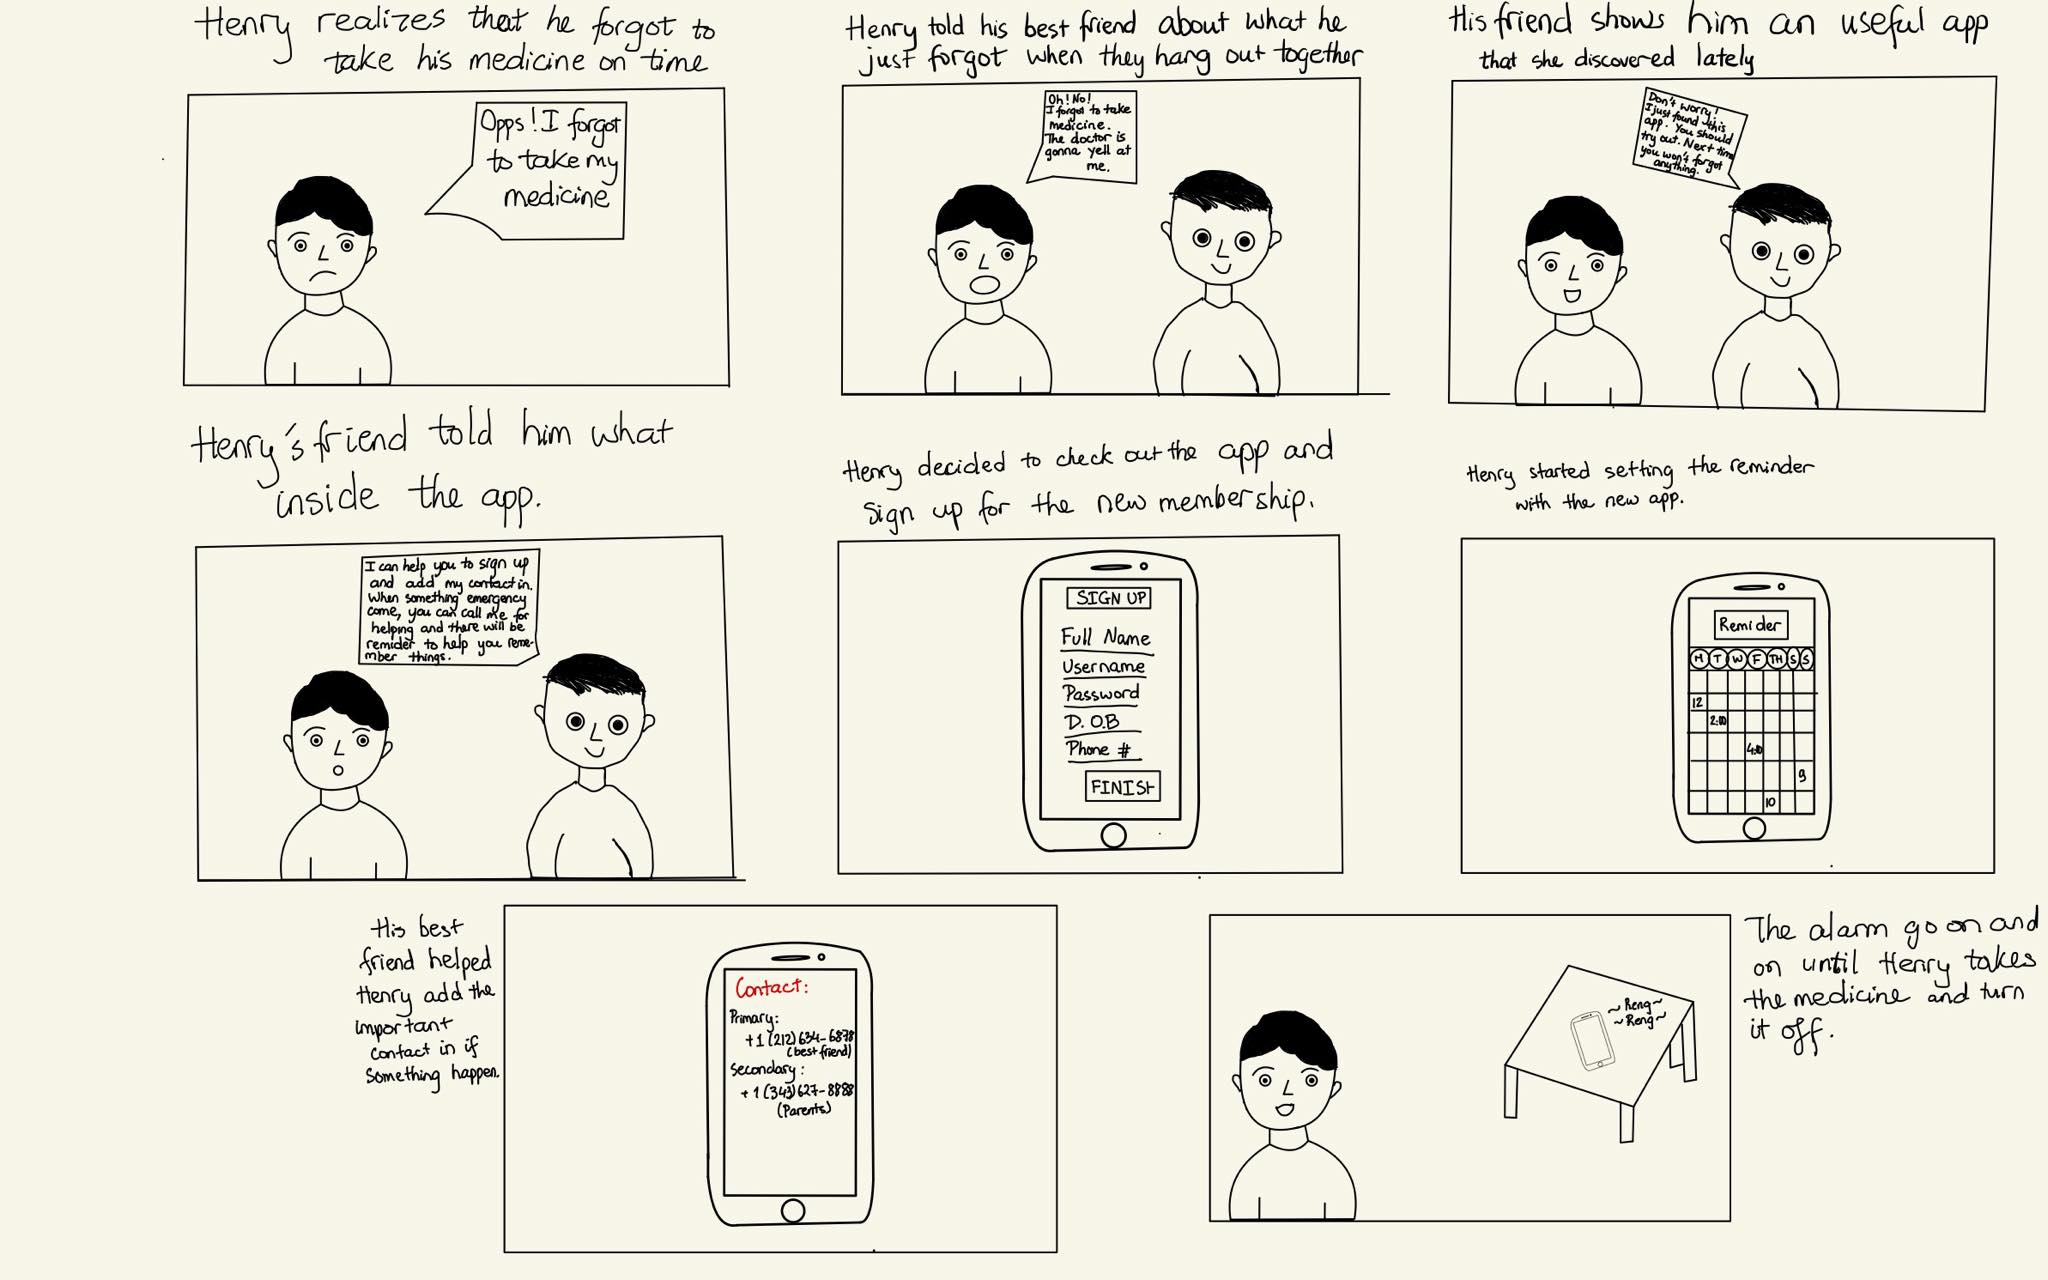 Henry realizes that he forgot to
take his medicine on time
Opps! I forgot
to take my
medicine
Henry told his best friend about what he
just forgot when they hang out together
Oh! No!
I forgot to take
medicine.
The doctor is
gonna yell at
me.
His friend shows him an useful app
that she discovered lately
Don't worry!
I just found this
app. You should
try out. Next time
you won't forgot
anything.
Henry's friend told him what
inside the app.
I can help you to sign up
and add my contact in.
When something emergency
come, you can call me for
helping and there will be
remider to help you reme-
mber things.
Henry decided to check out the app and
sign up for the new membership.
SIGN UP
Full Name
Username
Password
D.O.B
Phone #
FINISH
Henry started setting the reminder
with the new app.
Remider
M T W F TH S S
12
2:00
4:00
9
10
His best
friend helped
Henry add the
important
contact in if
something happen.
Contact:
Primary:
+1 (212) 634-6878
(best friend)
Secondary:
+1 (343) 627-8888
(Parents)
~Reng~
~Reng~
The alarm go on and
on until Henry takes
the medicine and turn
it off.